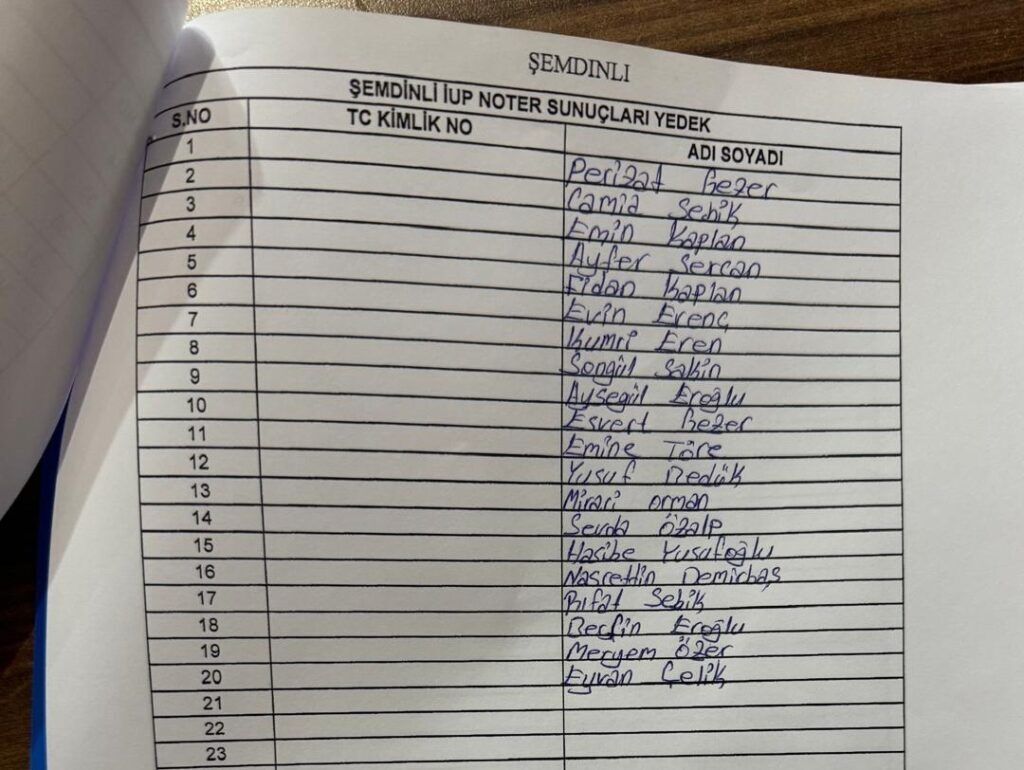 ŞEMDINLI
ŞEMDİNLİ İUP NOTER SUNUÇLARI YEDEK
S.NO TC KİMLİK NO ADI SOYADI
1 Perizat Gezer
2 Camia Sebik
3 Emin Kaplan
4 Ayfer Sercan
5 Fidan Kaplan
6 Evin Erenç
7 Kumri Eren
8 Songül Sakin
9 Ayşegül Eroğlu
10 Esvert Gezer
11 Emine Töre
12 Yusuf Bedük
13 Mirari orman
14 Sevda Özalp
15 Hasibe Yusufoğlu
16 Nasrettin Demirbaş
17 Rıfat Sebik
18 Berfin Eroğlu
19 Meryem Özer
20 Eyvan Çelik
21
22
23